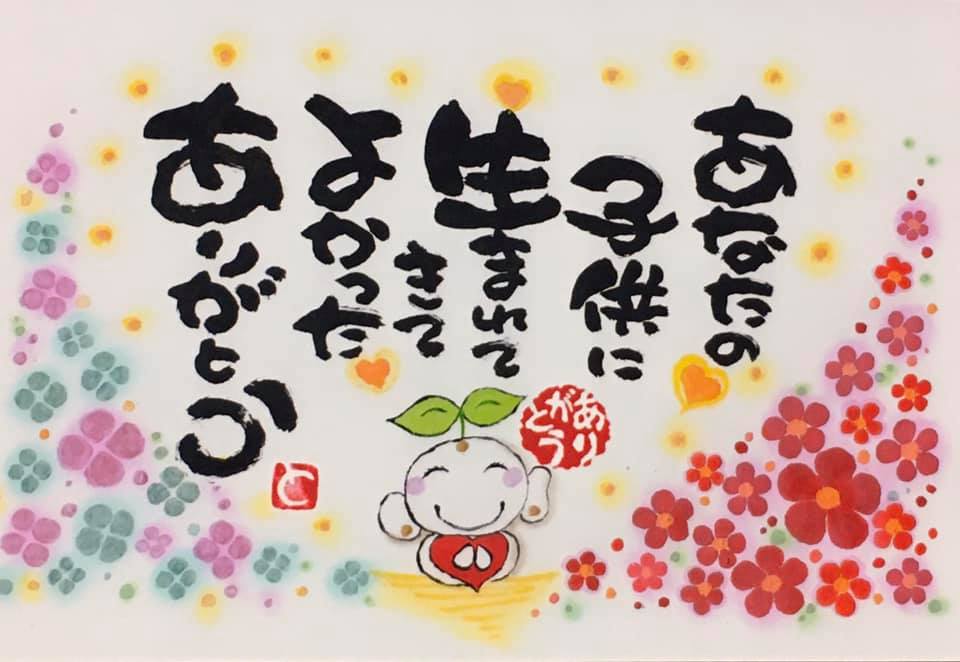 あなたの
子供に
生まれて
きて
よかった
ありがとう
あり
がとう
と